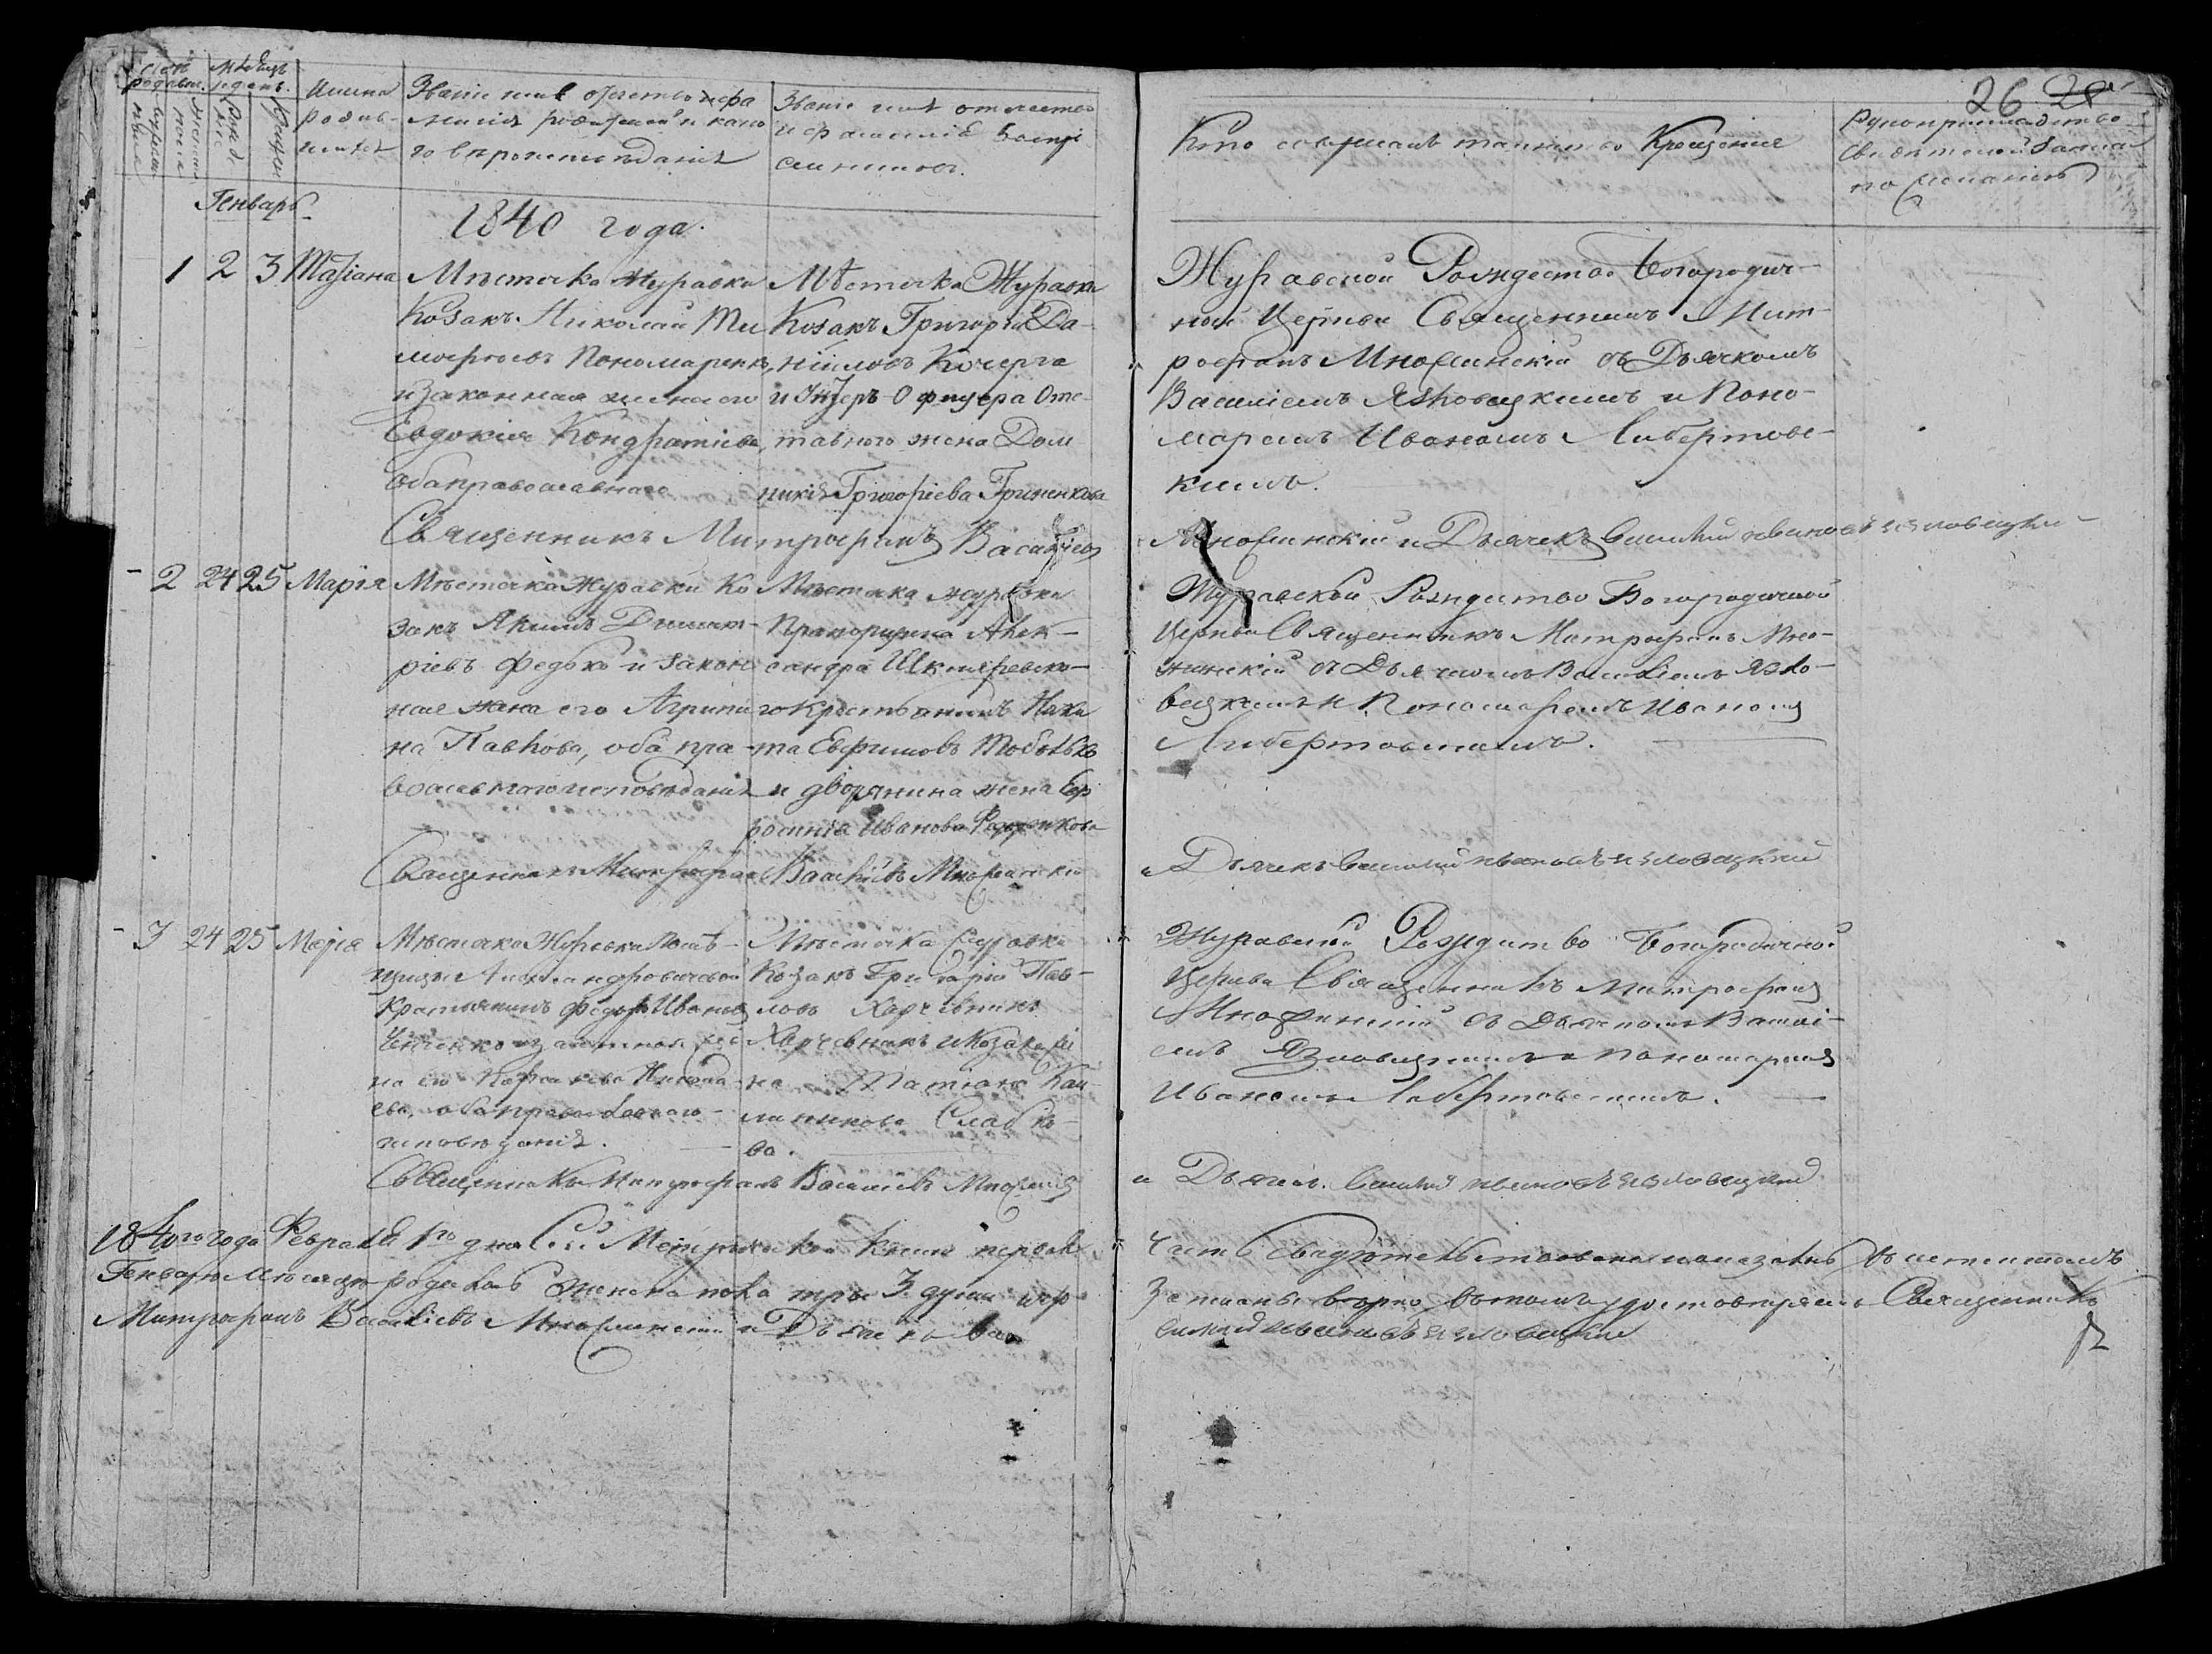 Счетъ родившихся.
Мѣсяцъ и день.
Имена родив-
шихся
Званіе имя отчество и фа
милія родителей и како
го вѣроисповѣданія
Званіе имя отчество
и фамилія воспрі
емниковъ.
Кто совершалъ таинство Крещенія
Рукоприкладство
свидѣтелей записи
по желанію
26
Генварь
1840 года.
1 2 3 Татіана
Мѣстечка Журавки
Козакъ Николай Ти
мофѣевъ Пономаренко,
и законная жена его
Евдокія Кондратіева,
оба православнаго
Мѣстечка Журавки
Козакъ Григорій Да-
ніиловъ Кочерга
и Унтеръ-Офицера Отс-
тавного жена Дом
никія Григоріева Гриненкова
Журавской Рождество Богородич-
ной Церкви Священникъ Мит-
рофанъ Мнофинскій съ Дьячкомъ
Василіемъ Язловецкимъ и Поно-
маремъ Иваномъ Либертовс-
кимъ.
Священникъ Митрофанъ Василіевъ
Мнофинскій и Дьячекъ Василій Ивановъ Язловецкій
2 24 25 Марія
Мѣстечка Журавки Ко
закъ Якимъ Димит-
ріевъ Федько и закон
ная жена его Агрипи
на Павлова, оба пра-
вославного исповѣданія
Мѣстечка Журавки
Прапорщика Алек-
сандра
го Крестьянинъ Ники
та Евфимовъ
и дворянина жена Евф
росинія Иванова
Журавской Рождество Богородичной
Церкви Священникъ Митрофанъ Мно-
финскій съ Дьячкомъ Василіемъ Язло-
вецкимъ и Пономаремъ Иваномъ
Либертовскимъ.
Священникъ Митрофанъ Василіевъ Мнофинскій
и Дьячекъ Василій Ивановъ Язловецкій
3 24 25 Марія
Мѣстечка Журавки Помѣ-
щицы Александровичевой
Крестьянинъ Федоръ Ивановъ
и законная же
на его Николае
ва, оба православного
исповѣданія.
Мѣстечка Журавки
Козакъ Григорій Пав-
ловъ Харчевникъ
Харчевникъ и Козака же
на Татіана Кали
ва.
Журавской Рождество Богородичной
Церкви Священникъ Митрофанъ
Мнофинскій съ Дьячкомъ Василі-
емъ Язловецкимъ и Пономаремъ
Иваномъ Либертовскимъ.
Священникъ Митрофанъ Василіевъ Мнофинскій
и Дьячекъ Василій Ивановъ Язловецкій
1840го года Февраля 1го дня Сей Метрической Книги первая
часть Свидѣтельствована и оказалось въ истекшомъ
Генварѣ мѣсяцѣ родилось женска пола три 3 души
записаны вѣрно въ томъ удостовѣряемъ Священникъ
Митрофанъ Василіевъ Мнофинскій и Дьячекъ Ва
силій Ивановъ Язловецкій